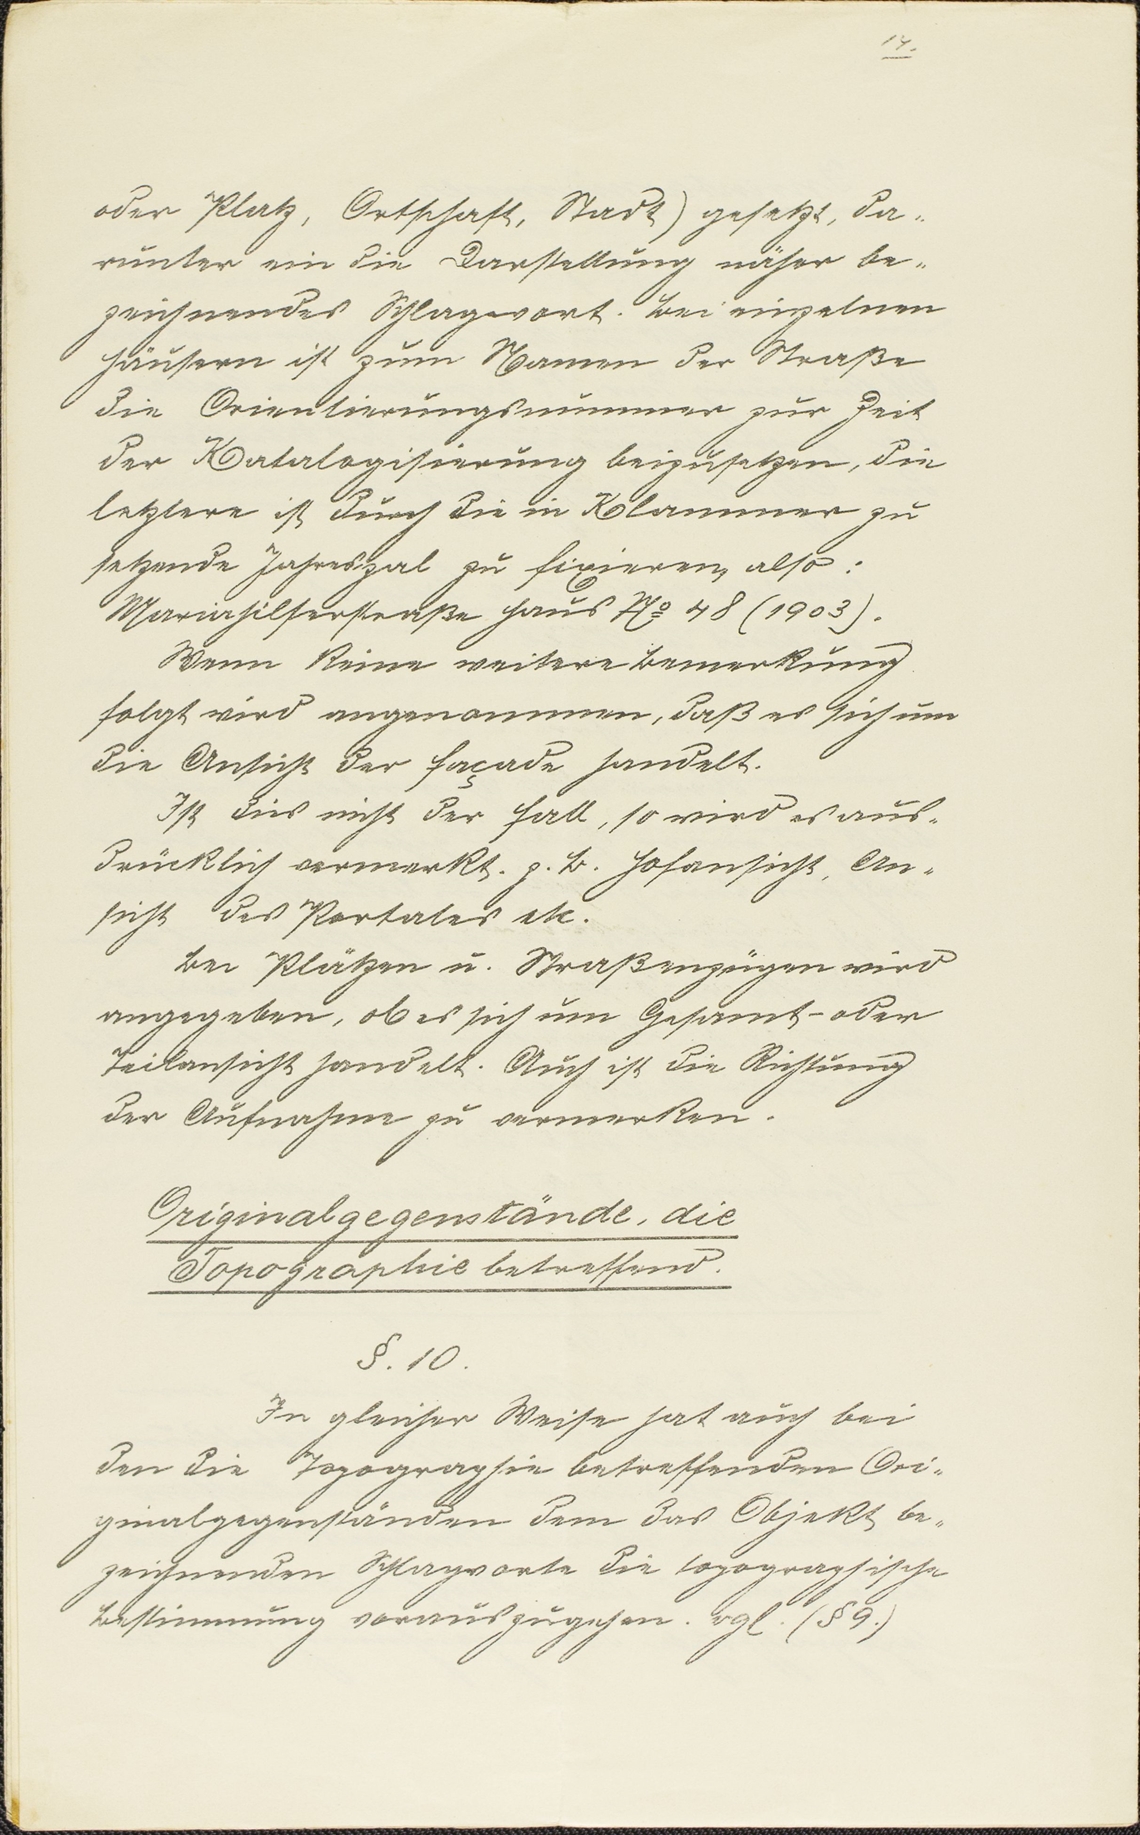 14.
oder Platz, Ortschaft, Stadt) gesetzt, da-
runter ein die Darstellung näher be-
zeichnendes Schlagwort. Bei einzelnen
Häusern ist zum Namen der Straße
die Orientierungsnummer zur Zeit
der Katalogisierung beizusetzen, die
letztere ist durch die in Klammer zu
setzende Jahreszal zu fixieren, also:
Mariahilferstraße Haus No 48 (1903).
Wenn keine weitere Bemerkung
folgt wird angenommen, daß es sich um
die Ansicht der Façade handelt.
Ist dies nicht der Fall, so wird es aus-
drücklich vermerkt. z. B. Hofansicht, An-
sicht des Portales etc.
Bei Plätzen u. Straßenzügen wird
angegeben, ob es sich um Gesamt- oder
Teilansicht handelt. Auch ist die Richtung
der Aufnahme zu vermerken.
Originalgegenstände, die
Topographie betreffend.
§. 10.
In gleicher Weise hat auch bei
den die Topographie betreffenden Ori-
ginalgegenständen dem das Objekt be-
zeichnenden Schlagworte die topographische
Bestimmung vorauszugehen. vgl. (§ 9.)